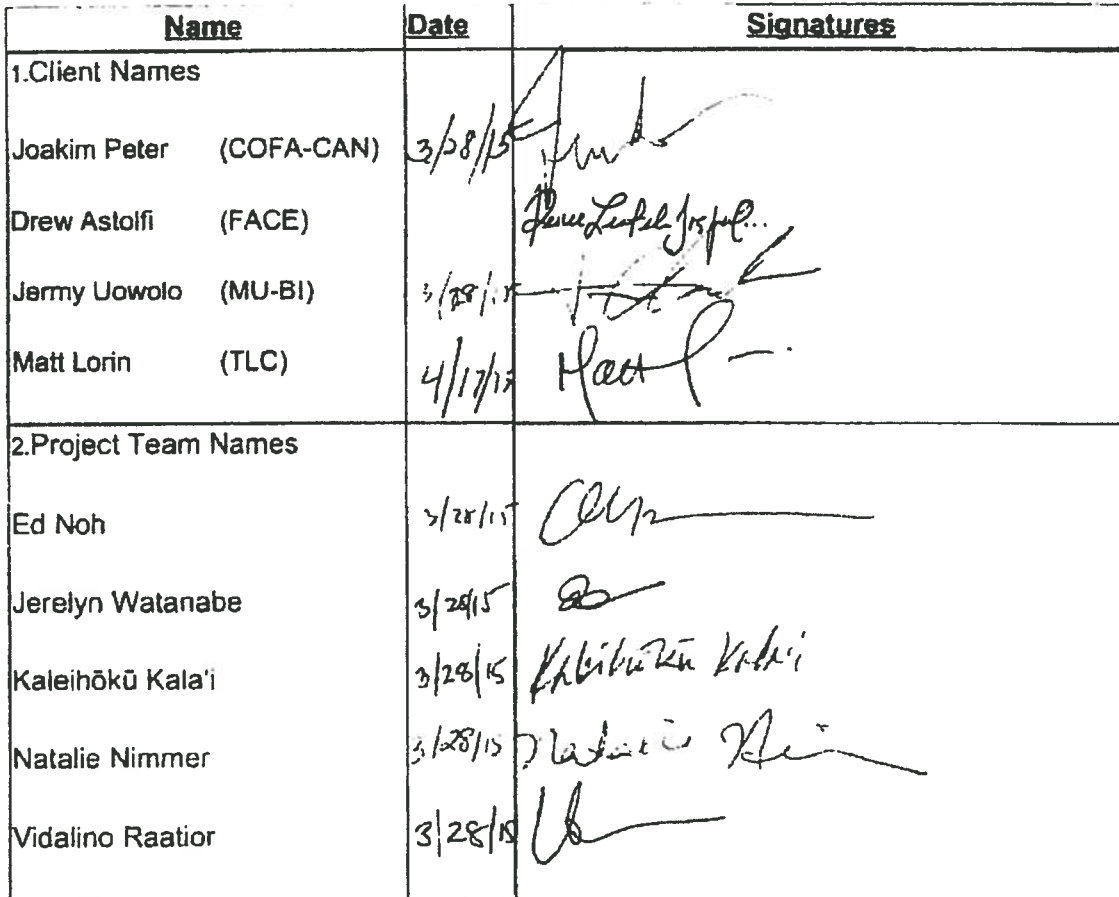 Name Date Signatures
1.Client Names
Joakim Peter (COFA-CAN) 3/28/15
Drew Astolfi (FACE)
Jermy Uowolo (MU-BI) 3/28/15
Matt Lorin (TLC) 4/17/15 Matt
2.Project Team Names
Ed Noh 3/28/15
Jerelyn Watanabe 3/28/15
Kaleihōkū Kala'i 3/28/15 Kaleihōkū Kala'i
Natalie Nimmer 3/28/15 Natalie
Vidalino Raatior 3/28/15